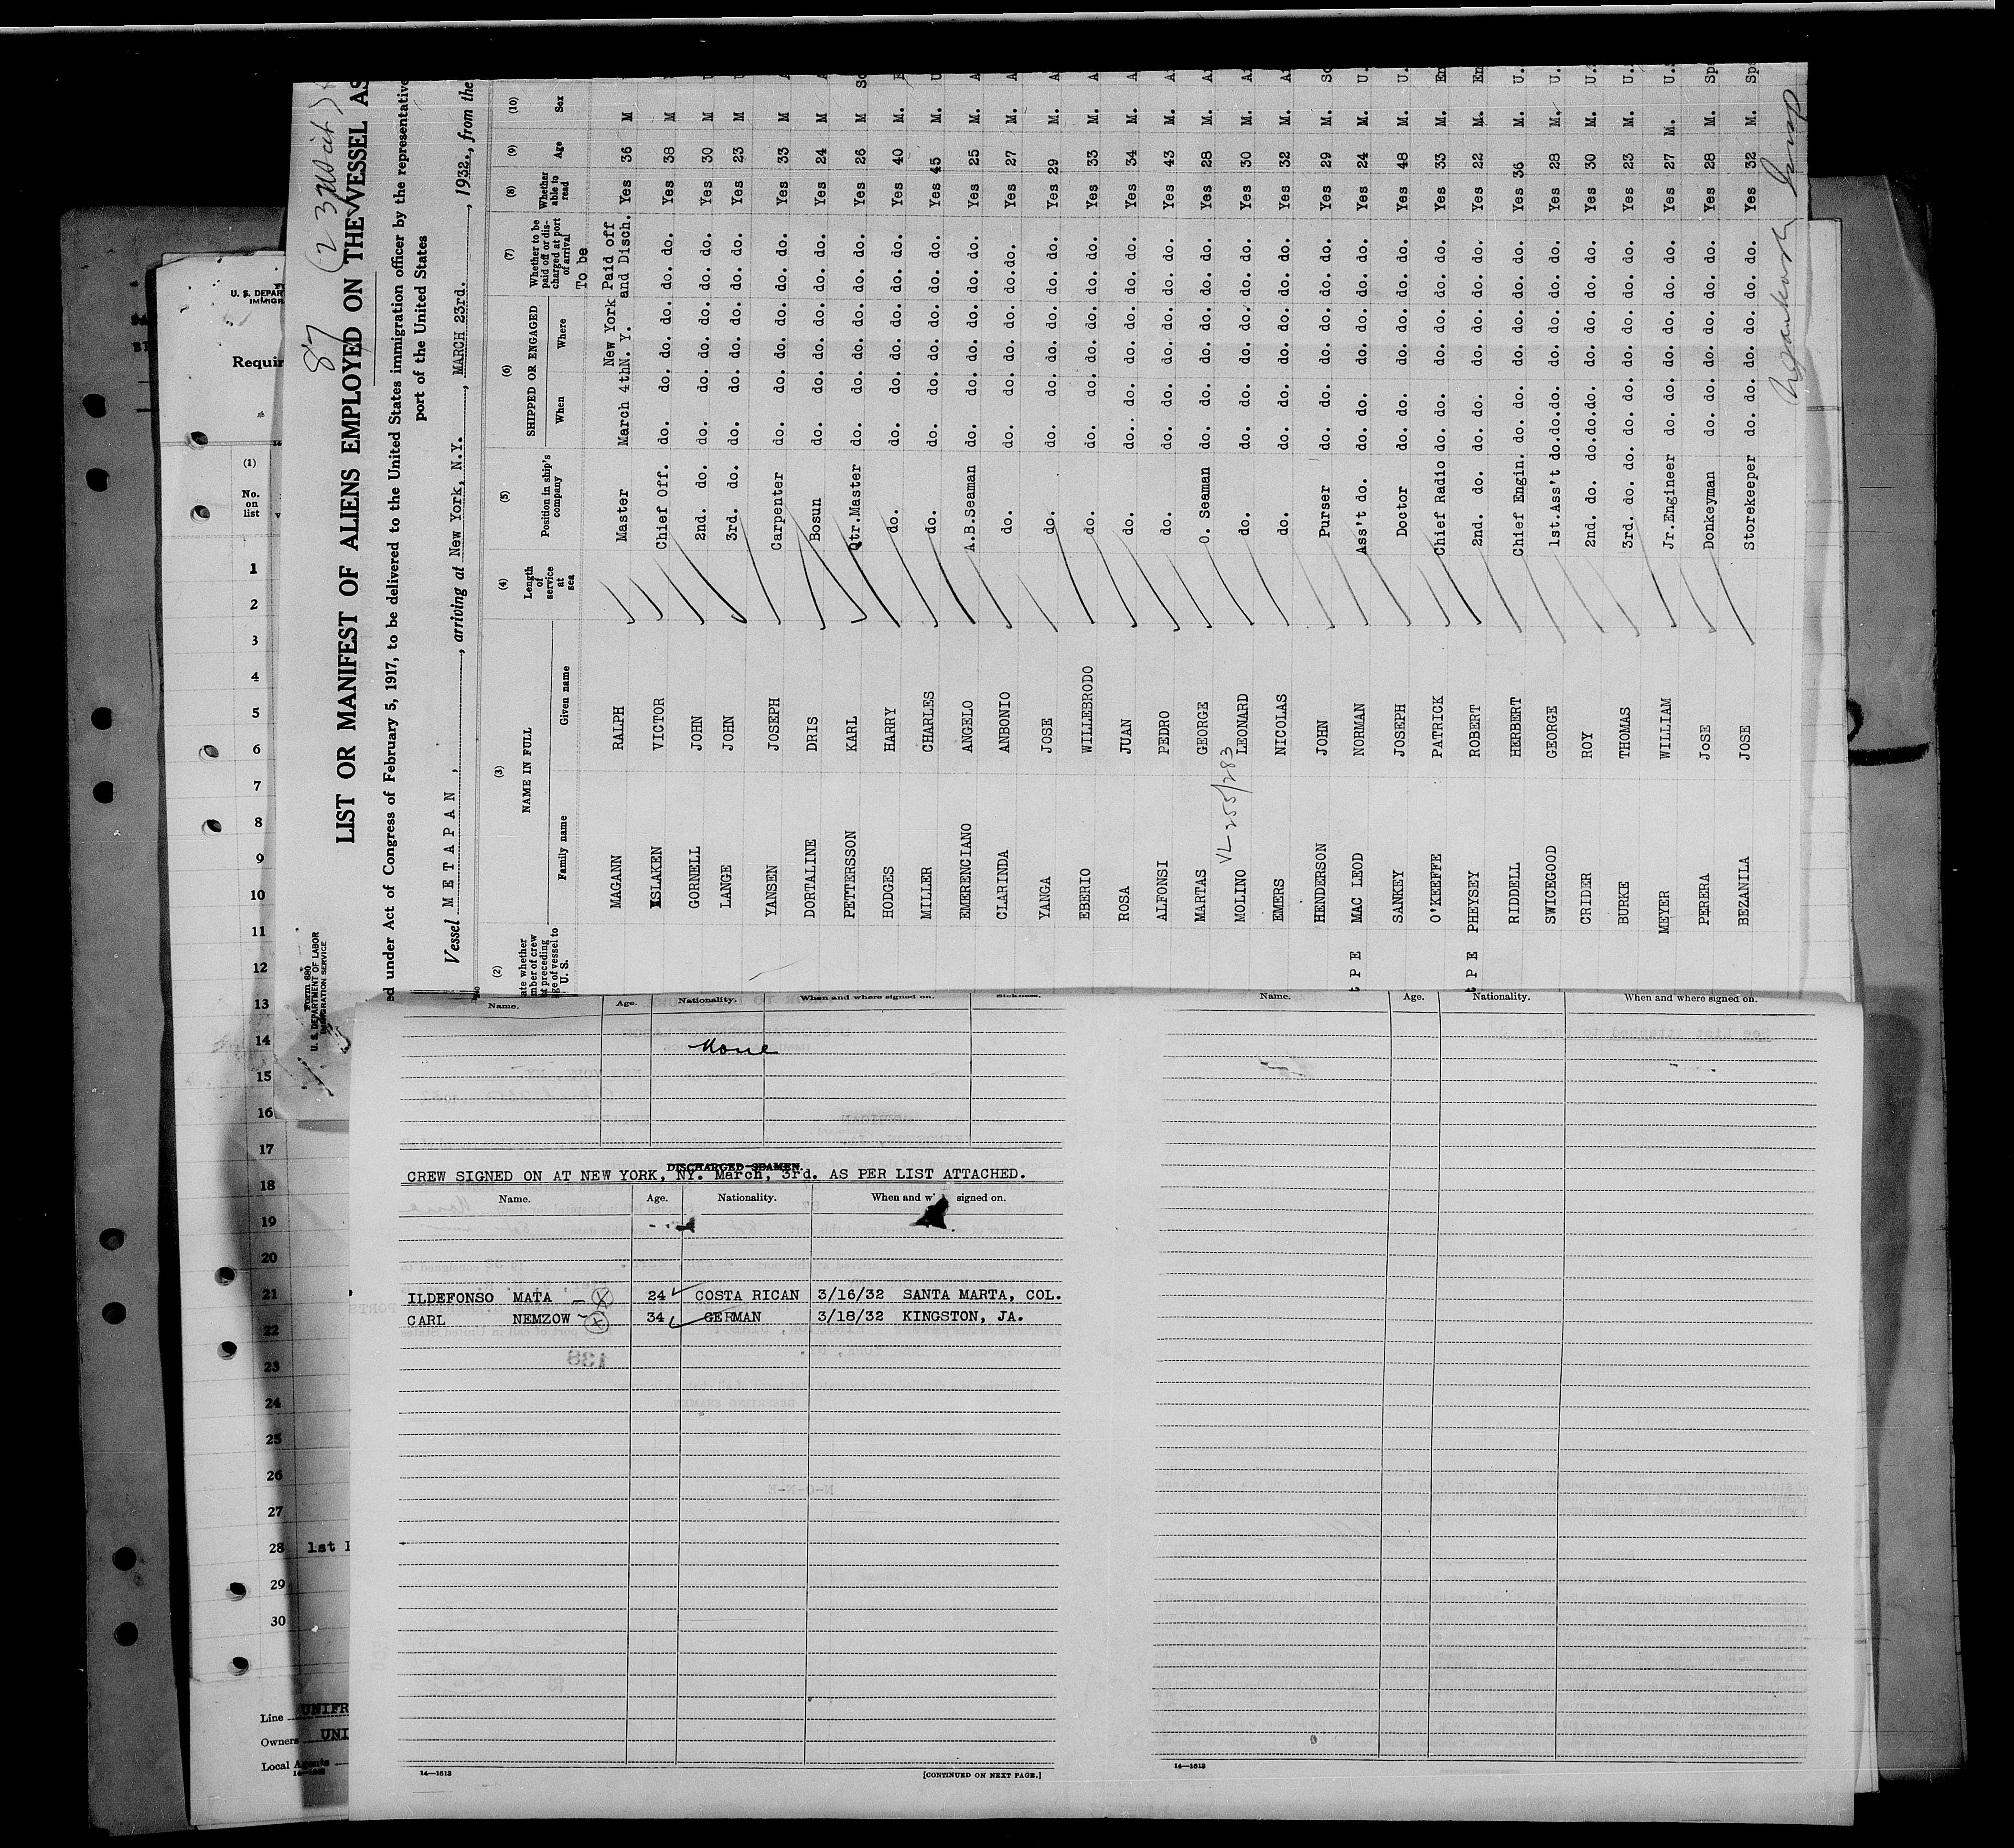 87 (23
LIST OR MANIFEST OF ALIENS EMPLOYED ON THE VESSEL AS
ed under Act of Congress of February 5, 1917, to be delivered to the United States immigration officer by the representative
port of the United States
Vessel METAPAN, arriving at New York, N.Y., MARCH 23rd., 1932., from the
Form 680
U. S. DEPARTMENT OF LABOR
IMMIGRATION SERVICE
(2) (3) NAME IN FULL (4) Length of service at sea (5) Position in ship's company (6) SHIPPED OR ENGAGED (7) Whether to be paid off or discharged at port of arrival (8) Whether able to read (9) Age (10) Sex
Family name Given name When Where
To be
MAGANN RALPH Master March 4th New York N. Y. Paid off and Disch. Yes 36 M
ISLAKEN VICTOR Chief Off. do. do. do. do. do. do. Yes 38 M
GORNELL JOHN 2nd. do. do. do. do. do. do. do. Yes 30 M
LANGE JOHN 3rd. do. do. do. do. do. do. do. Yes 23 M
YANSEN JOSEPH Carpenter do. do. do. do. do. do. Yes 33 M
DORTALINE DRIS Bosun do. do. do. do. do. do. Yes 24 M
PETTERSSON KARL Qtr.Master do. do. do. do. do. do. Yes 26 M Sc
HODGES HARRY do. do. do. do. do. do. do. Yes 40 M.
MILLER CHARLES do. do. do. do. do. do. do. Yes 45 M. U
EMERENCIANO ANGELO A.B.Seaman do. do. do. do. do. do. Yes 25 M. A
CLARINDA ANBONIO do. do. do. do. do. do.do. Yes 27 M. A
YANGA JOSE do. do. do. do. do. do. do. Yes 29 M. A
EBERIO WILLEBRODO do. do. do. do. do. do. do. Yes 33 M. A
ROSA JUAN do. do.. do. do. do. do. do. Yes 34 M. A
ALFONSI PEDRO do. do. do. do. do. do. do. Yes 43 M. A
MARTAS GEORGE O. Seaman do. do. do. do. do. do. Yes 28 M. A
VL-255/283
MOLINO LEONARD do. do. do. do. do. do. do. Yes 30 M. A
EMERS NICOLAS do. do. do. do. do. do. do. Yes 32 M. A
HENDERSON JOHN Purser do. do. do. do. do. do. Yes 29 M. Sc
MAC LEOD NORMAN Ass't do. do. do. do. do. do. do. Yes 24 M. U.
SANKEY JOSEPH Doctor do. do. do. do. do. do. Yes 48 M. U.
O'KEEFFE PATRICK Chief Radio do. do. do. do. do. do. Yes 33 M. En
PHEYSEY ROBERT 2nd. do. do. do. do. do. do. do. Yes 22 M. En
RIDDELL HERBERT Chief Engin. do. do. do. do. do. do. Yes 36 M. U.
SWICEGOOD GEORGE 1st.Ass't do.do.do. do. do. do. do. Yes 28 M. U.
CRIDER ROY 2nd. do. do.do.do. do. do. do. do. Yes 30 M. U.
BURKE THOMAS 3rd. do. do. do. do. do. do. do. do. Yes 23 M. U.
MEYER WILLIAM Jr.Engineer do. do. do. do. do. do. Yes 27 M. U.
PERERA JoSE Donkeyman do. do. do. do. do. do. Yes 28 M. Sp
BEZANILA JOSE Storekeeper do. do. do. do. do. do. Yes 32 M. Sp
U. S. DEPAR
IMMIGRA
Requir
(1)
No.
on
list
1
2
3
4
5
6
7
8
9
10
11
12
13
14
15
16
17
18
19
20
21
22
23
24
25
26
27
28 1st
29
30
Line UNIFR
Owners UNI
Local Agents
Name. Age. Nationality. When and where signed on. Sickness.
None
DISCHARGED SEAMEN.
CREW SIGNED ON AT NEW YORK, NY. March, 3rd. AS PER LIST ATTACHED.
Name. Age. Nationality. When and signed on.
ILDEFONSO MATA 24 COSTA RICAN 3/16/32 SANTA MARTA, COL.
CARL NEMZOW 34 GERMAN 3/18/32 KINGSTON, JA.
14—1613 [CONTINUED ON NEXT PAGE.]
Name. Age. Nationality. When and where signed on.
14—1613